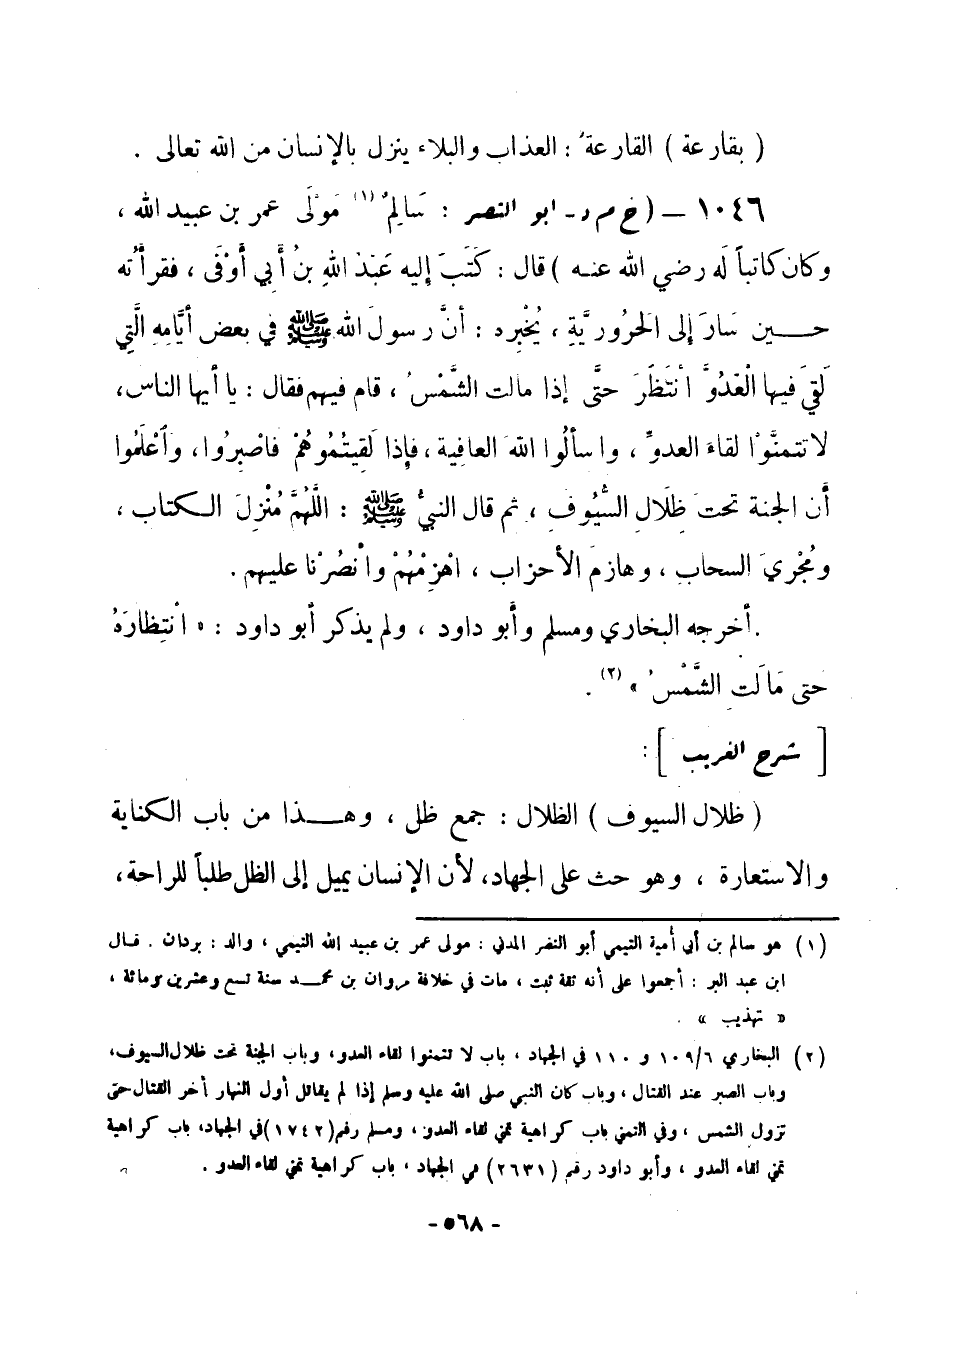 ( بقارعة ) القارعةُ : العذاب والبلاء ينزل بالإنسان من الله تعالى .
١٠٤٦ – ( خ م د - ابو النصر : سَالِمٌ (١) مَوْلَى عمر بن عبيد الله ،
وكان كاتباً لَه رضي الله عنه ) قال : كَتَبَ إليه عَبْدُ اللهِ بنُ أبي أَوْفَى ، فقرأتُه
حين سَارَ إلى الحَرُورِيَّةِ ، يُخْبِره : أنَّ رسولَ الله ﷺ في بعض أيَّامِهِ الَّتي
لَقِيَ فيها الْعَدُوَّ انْتَظَرَ حتَّى إذا مالت الشَّمْسُ ، قام فيهم فقال : يا أيها الناس،
لا تتمنَّوْا لقاءَ العدوِّ ، واسألُوا اللهَ العافية ، فإذا لَقِيتُمُوهُمْ فاصْبِرُوا، وَاعْلَمُوا
أن الجنة تحتَ ظِلَالِ السُّيُوفِ ، ثم قال النبيُّ ﷺ : اللَّهُمَّ مُنْزِلَ الكتاب ،
ومُجْريَ السحاب ، وهازمَ الأحزاب ، اهْزِمْهُمْ وانْصُرْنا عليهم .
أخرجه البخاري ومسلم وأبو داود ، ولم يذكر أبو داود : « انْتِظَارَهُ
حتى مَالَتِ الشَّمْسُ » (٢) .
[ شرح الغريب ] :
( ظلال السيوف ) الظلال : جمع ظل ، وهذا من باب الكناية
والاستعارة ، وهو حث على الجهاد، لأن الإنسان يميل إلى الظل طلباً للراحة،
(١) هو سالم بن أبي أمية التيمي أبو النضر المدني : مولى عمر بن عبيد الله التيمي ، والد : بردان . قال
ابن عبد البر : أجمعوا على أنه ثقة ثبت ، مات في خلافة مروان بن محمد سنة تسع وعشرين ومائة ،
« تهذيب » .
(٢) البخاري ١٠٩/٦ و ١١٠ في الجهاد ، باب لا تتمنوا لقاء العدو، وباب الجنة تحت ظلال السيوف،
وباب الصبر عند القتال ، وباب كان النبي صلى الله عليه وسلم إذا لم يقاتل أول النهار أخر القتال حتى
تزول الشمس ، وفي التمني باب كراهية تمني لقاء العدو ، ومسلم رقم (١٧٤٢) في الجهاد، باب كراهية
تمني لقاء العدو ، وأبو داود رقم (٢٦٣١) في الجهاد ، باب كراهية تمني لقاء العدو .
- ٥٦٨ -